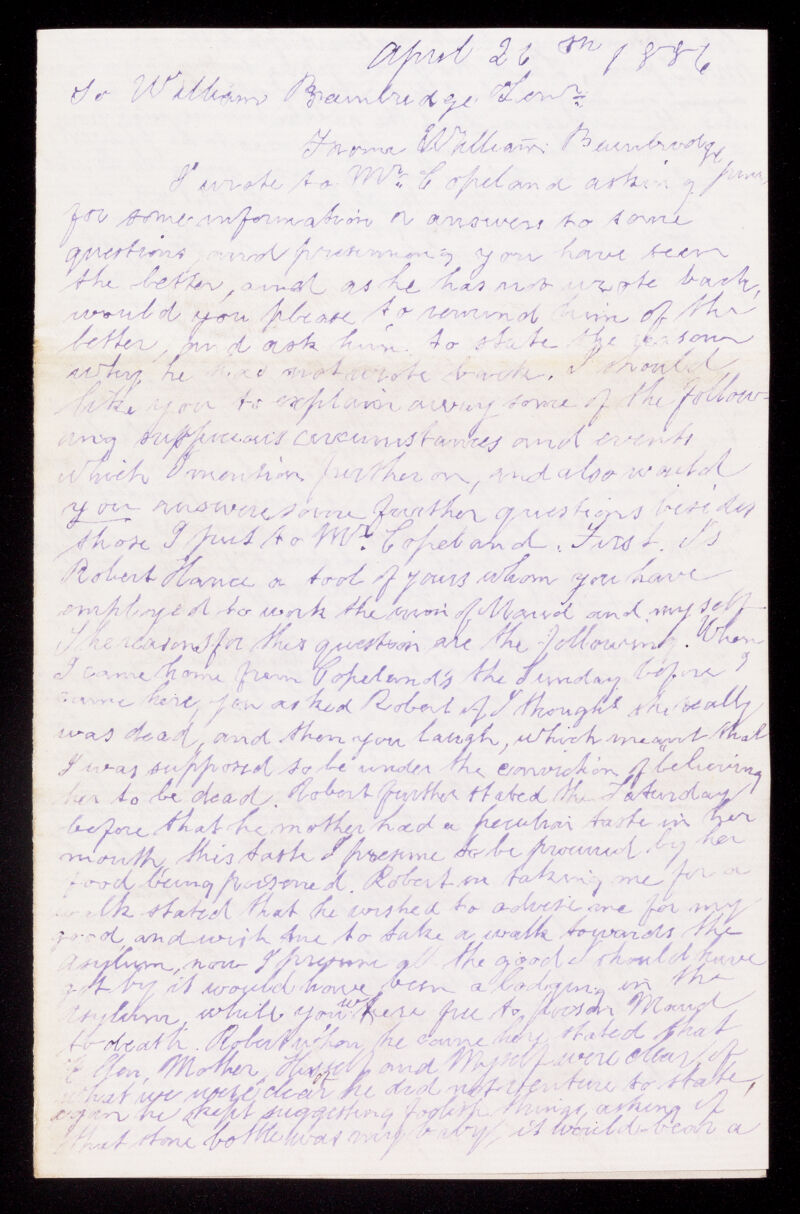 April 26th 1886
To William Bainbridge Senr.
From William Bainbridge Junr
I wrote to Mr. Copeland asking
for some information or answers to some
questions and presuming you have seen
the letter, and as he has not wrote back,
would you please to remind him of the
letter, and ask him to state the reason
why he has not wrote back. I should
like you to explain away some of the follow-
ing suspicious circumstances and events
which I mention further on, and also would
you answere some further questions besides
those I put to Mr. Copeland. First. Is
Robert Hance a tool of yours whom you have
employed to work the ruin of Maud and myself
The reasons for this question are the following. When
I came home from Copeland's the Sunday before I
came here, you asked Robert if I thought she really
was dead, and then you laugh, which meant that
I was supposed to be under the conviction of believing
her to be dead. Robert further stated the Saturday
before that he mother had a peculiar taste in her
mouth, this taste I presume to be procured by her
food being poisoned. Robert in taking me for a
walk stated that he wished to advise me for my
good, and wish me to take a walk towards the
Asylum, now I presume all the good I should have
got by it would have been a lodging in the
Asylum, while you were free to poison Maud
to death. Robert when he came here stated that
You, Mother, Himself and Myself were clear of
what we were clear he did not venture to state,
again he kept suggesting foolish things, asking if
that stone bottle was my baby, it would bear a